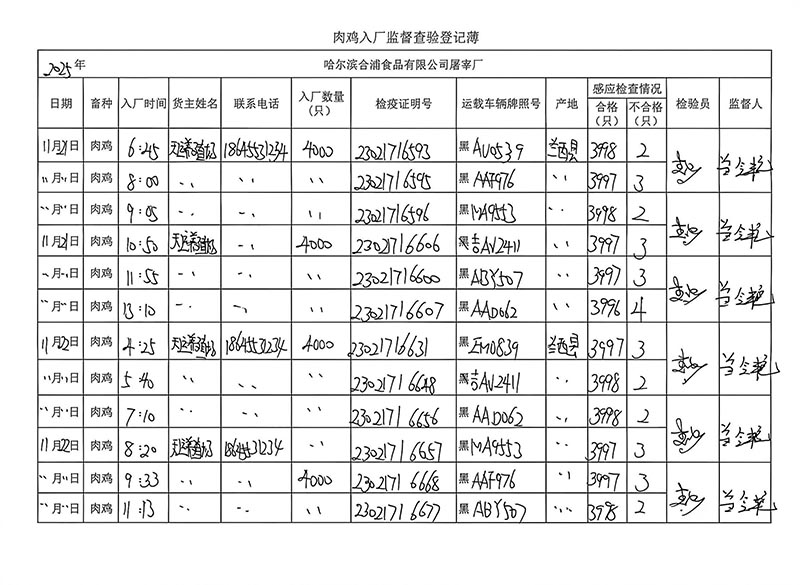 肉鸡入厂监督查验登记薄
2025年 哈尔滨合浦食品有限公司屠宰厂
日期 畜种 入厂时间 货主姓名 联系电话 入厂数量（只） 检疫证明号 运载车辆牌照号 产地 感应检查情况 合格（只） 不合格（只） 检验员 监督人
11月21日 肉鸡 6:45 18645531234 4000 23021716593 黑AU0539 兰西县 3998 2
〃月〃日 肉鸡 8:00 〃 〃 〃 23021716595 黑AAF976 〃 3997 3
〃月〃日 肉鸡 9:05 〃 〃 〃 23021716596 黑MA9553 〃 3998 2
11月21日 肉鸡 10:50 〃 4000 23021716606 吉AV2411 〃 3997 3
〃月〃日 肉鸡 11:55 〃 〃 〃 23021716600 黑ABY507 〃 3997 3
〃月〃日 肉鸡 13:10 〃 〃 〃 23021716607 黑AAD062 〃 3996 4
11月22日 肉鸡 4:25 18645531234 4000 23021716631 黑EM0839 兰西县 3997 3
〃月〃日 肉鸡 5:40 〃 〃 〃 23021716648 吉AV2411 〃 3998 2
〃月〃日 肉鸡 7:10 〃 〃 〃 23021716656 黑AAD062 〃 3998 2
11月22日 肉鸡 8:20 18645531234 〃 23021716657 黑MA9553 〃 3997 3
〃月〃日 肉鸡 9:33 〃 〃 4000 23021716668 黑AAF976 〃 3997 3
〃月〃日 肉鸡 11:13 〃 〃 〃 23021716677 黑ABY507 〃 3998 2